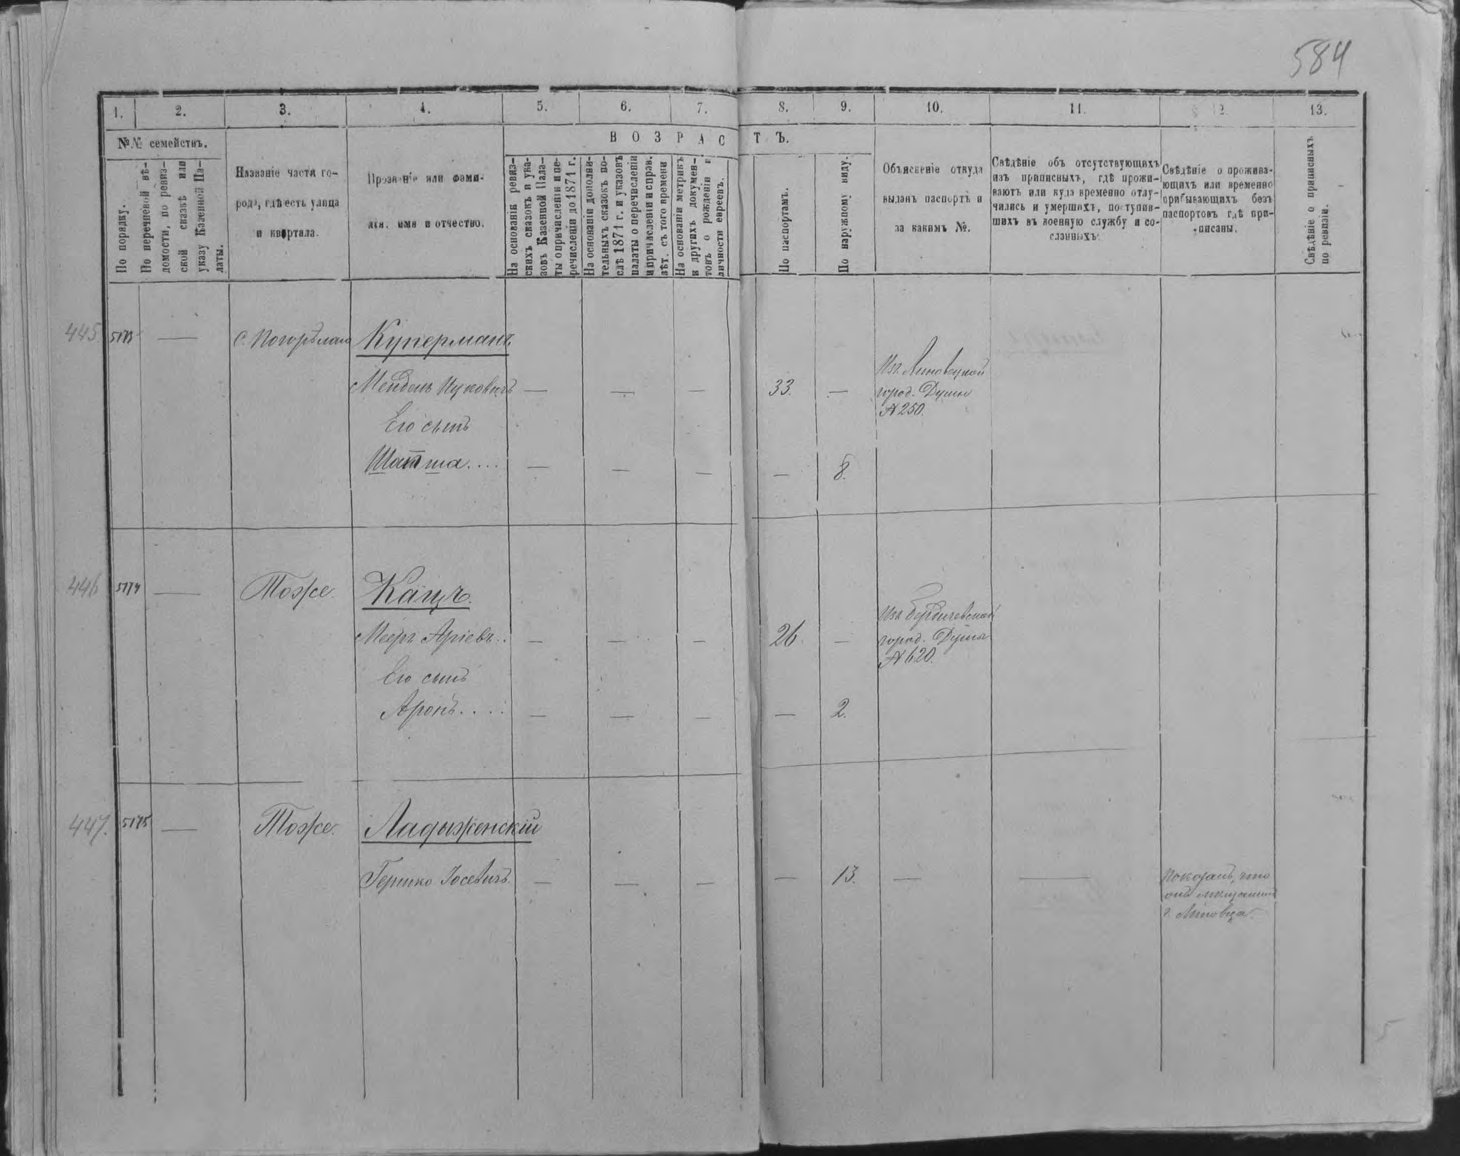 584
1. 2. 3. 4. 5. 6. 7. 8. 9. 10. 11. 12. 13.
№№ семействъ.
По порядку.
По перечневой вѣ-
домости, по ревиз-
ской сказкѣ или
указу Казенной Па-
латы.
Названіе части го-
рода, гдѣ есть улица
и квартала.
Прозваніе или фами-
лія, имя и отчество.
ВОЗРАСТЪ.
На основаніи ревиз-
скихъ сказокъ и ука-
зовъ Казенной Пала-
ты о причисленіи и пе-
речисленіи до 1871 г.
На основаніи дополни-
тельныхъ сказокъ по-
слѣ 1871 г. и указовъ
палаты о перечисленіи
и причисленіи и справ.
лѣт. съ того времени
На основаніи метрикъ
и другихъ докумен-
товъ о рожденіи и
личности евреевъ.
По паспортамъ.
По наружному виду.
Объясненіе откуда
выданъ паспортъ и
за какимъ №.
Свѣдѣніе объ отсутствующихъ
изъ приписныхъ, гдѣ прожи-
ваютъ или куда временно отлу-
чились и умершихъ, поступив-
шихъ въ военную службу и со-
сланныхъ.
Свѣдѣніе о прожива-
ющихъ или временно
прибывающихъ безъ
паспортовъ гдѣ при-
писаны.
Свѣдѣніе о приписныхъ
по ревизіи.
445 5173 — с. Погорѣлая Куперманъ
Мендель Ицковичъ — — — 33. — Изъ Липовецкой
город. Думы
№ 250.
Его сынъ
.... — — — — 8.
446 5174 — Тоже. Кацъ.
Мееръ Аріевъ.. — — — 26 — Изъ Бердичевской
город. Думы
№ 620.
Его сынъ
Аронъ.... — — — — 2.
447. 5175 — Тоже. Ладыженскій
Гершко Іосевичъ. — — — — 13. — — Показалъ, что
онъ мѣщанинъ
г. Липовца.
5